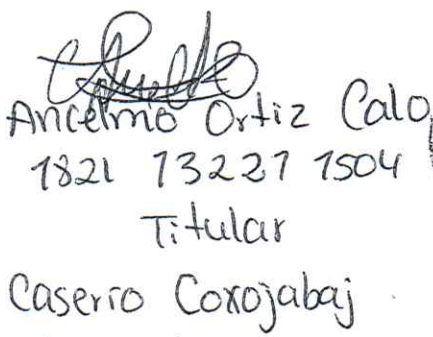 Ancelmo Ortiz Calo
1821 73227 1504
Titular
Caserio Coxojabaj